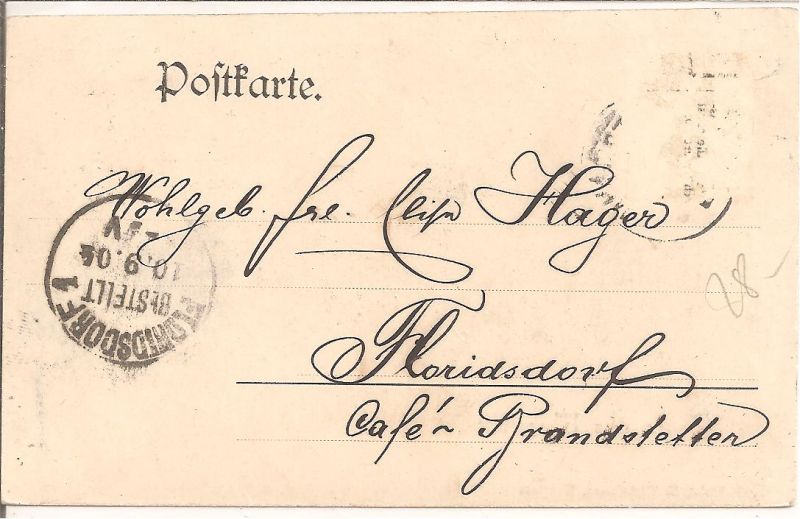 Postkarte.
Wohlgeb. Frl. Elise Hager
Floridsdorf
Café Brandstetter
28-
FLORIDSDORF 1
BESTELLT
10.9.04